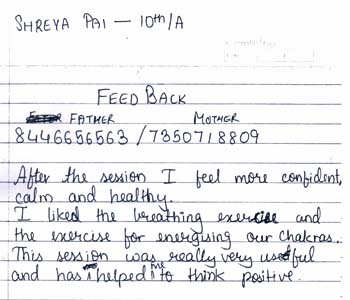 SHREYA PAI — 10th/A
FEED BACK
FATHER MOTHER
8446656563 / 7350718809
After the session I feel more confident,
calm and healthy.
I liked the breathing exercise and
the exercise for energising our chakras.
This session was really very useful
and has helped me to think positive.